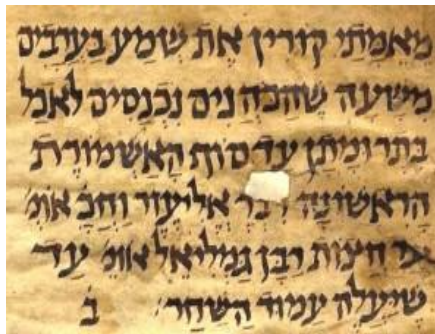 מאמתי קורין את שמע בערבים
משעה שהכהנים נכנסים לאכל
בתרומתן עד סוף האשמורת
הראשונה דבר אליעזר וחכ' אומ'
עד חצות רבן גמליאל אומ' עד
שיעלה עמוד השחר' ב'